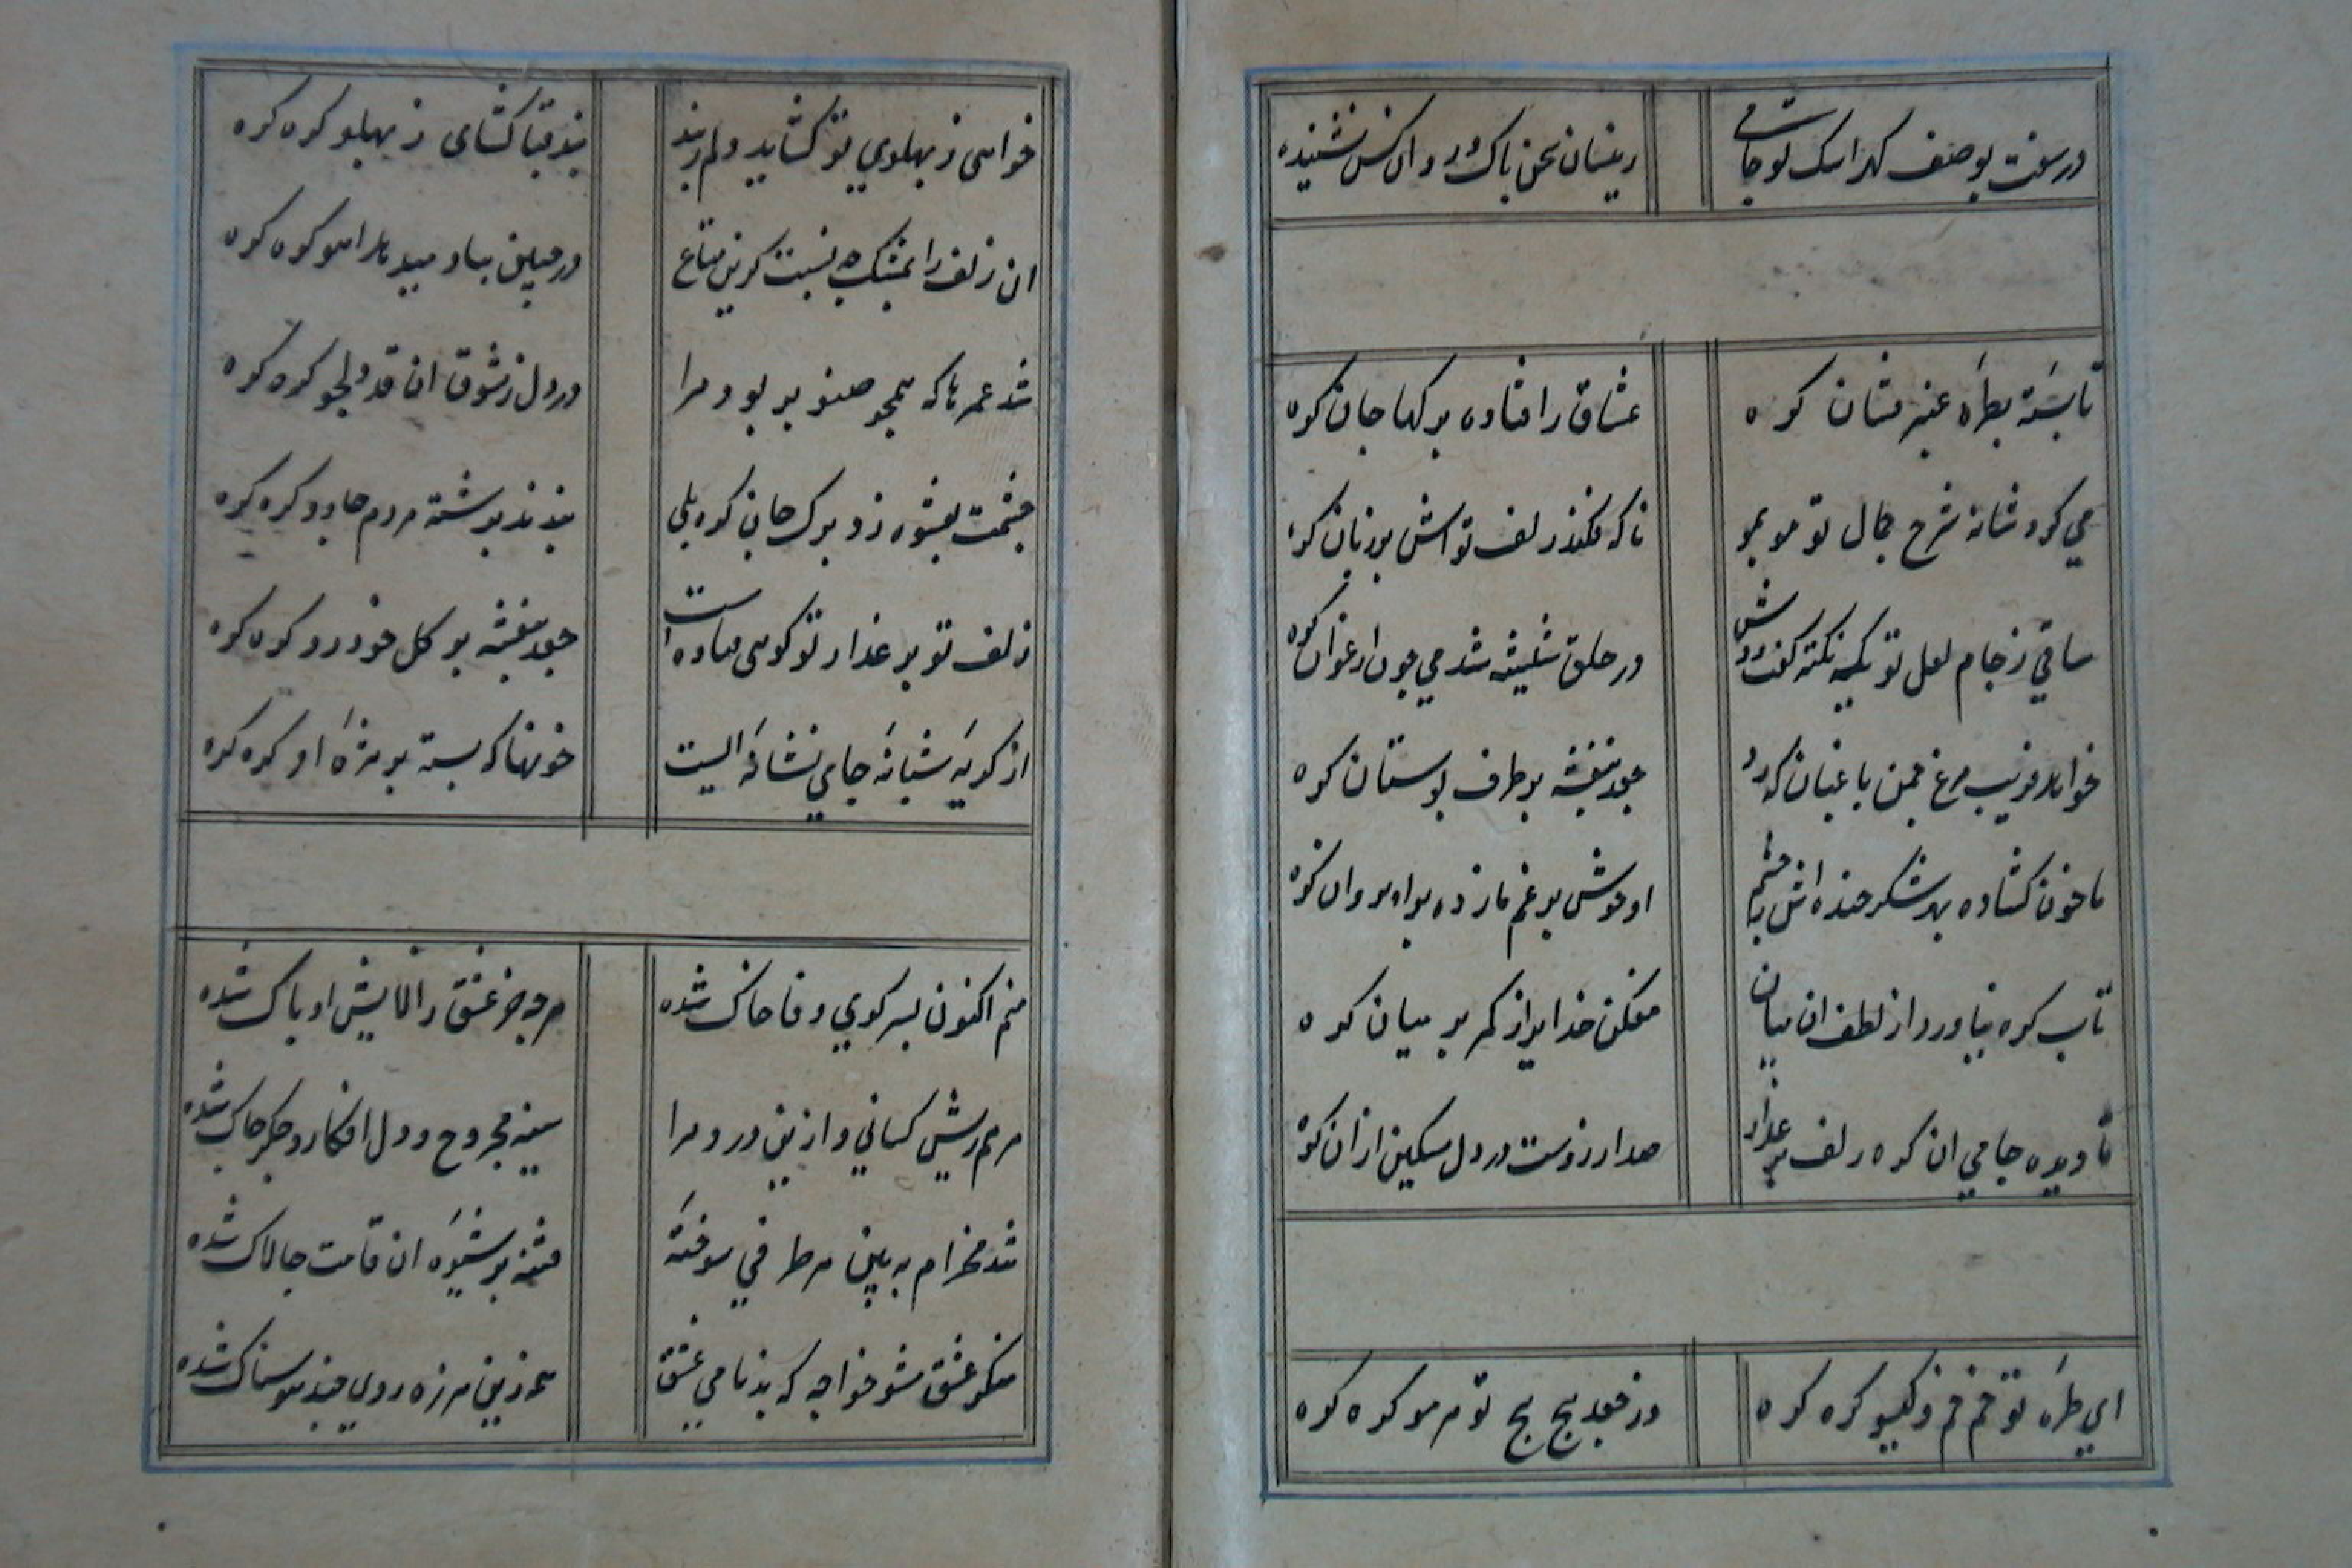 در سفت بوصف گهر اشک تو جامی
زینسان سخن پاک ور وان کس نشنیده
تا بسته بطره عنبر فشان کره
عشاق را فتاده بر کهاء جان کره
می کرد شانه شرح جمال تو مو بمو
ناکه فکند زلف تو اش بر زبان کره
ساقی ز جام لعل تو یک نکته گفت دوش
در حلق شیشه شد می چون ارغوان کره
خواهد فریب مرغ چمن باغبان که زد
جعد بنفشه بر طرف بوستان کره
ما خون کشاده بهر شکر خنده اش ز چشم
او خوش برغم ما زده بر ابروان کره
تاب کره نیاورد از لطف ان میان
مفکن خدا یرا ز کمر بر میان کره
تا دیده جامی ان کره زلف بر عذار
صد ارزوست در دل مسکین ازان کره
ای طره تو خم خم و گیسو کره کره
وز جعد پچ پچ تو هر مو کره کره
خواهی ز پهلوی تو کشاید دلم ز بند
بند قبا کشای ز پهلو کره کره
ان زلف را بمشک چه نسبت کزین متاع
در چین بباد میدهد اهو کره کره
شد عمرها که همچو صنوبر بود مرا
در دل ز شوق ان قد دلجو کره کره
چشمت بعشوه زد برک جان کره بلی
بندند بر شته مردم جادو کره کره
زلف تو بر عذار تو گویی فتاده است
جعد بنفشه بر گل خودرو کره کره
از گریه شبانه جامی نشانه ایست
خونها که بسته بر مژه او کره کره
منم اکنون بسر کوی وفا خاک شده
هر چه جز عشق ز الایش او پاک شده
مرهم ریش کسانی و ازین درد مرا
سینه مجروح و دل افکار و جگر چاک شده
شد مخرام به بین هر طرفی سوخته
فتنه بر شیوه ان قامت چالاک شده
منکر عشق مشو خواجه که بدنامی عشق
همه زین هرزه روی چند هوسناک شده